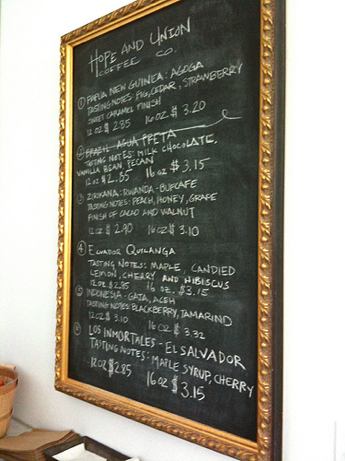 HOPE AND UNION
COFFEE CO.
① PAPUA NEW GUINEA: AGOGA
TASTING NOTES: FIG, CEDAR, STRAWBERRY
SWEET CARAMEL FINISH
12 OZ $ 2.85 16 OZ $ 3.20
② BRAZIL AGUA PRETA
TASTING NOTES: MILK CHOCOLATE,
VANILLA BEAN, PECAN
12 OZ $ 2.85 16 OZ $ 3.15
3 ZIRIKANA: RWANDA - BUFCAFE
TASTING NOTES: PEACH, HONEY, GRAPE
FINISH OF CACAO AND WALNUT
12 OZ $ 2.90 16 OZ $ 3.10
④ ECUADOR QUILANGA
TASTING NOTES: MAPLE, CANDIED
LEMON, CHERRY AND HIBISCUS
12 OZ. $ 2.85 16 OZ. $ 3.15
⑤ INDONESIA - GAJA, ACEH
TASTING NOTES: BLACKBERRY, TAMARIND
12 OZ $ 3.10 16 OZ $ 3.32
⑥ LOS INMORTALES - EL SALVADOR
TASTING NOTES: MAPLE SYRUP, CHERRY
12 OZ $ 2.85 16 OZ $ 3.15